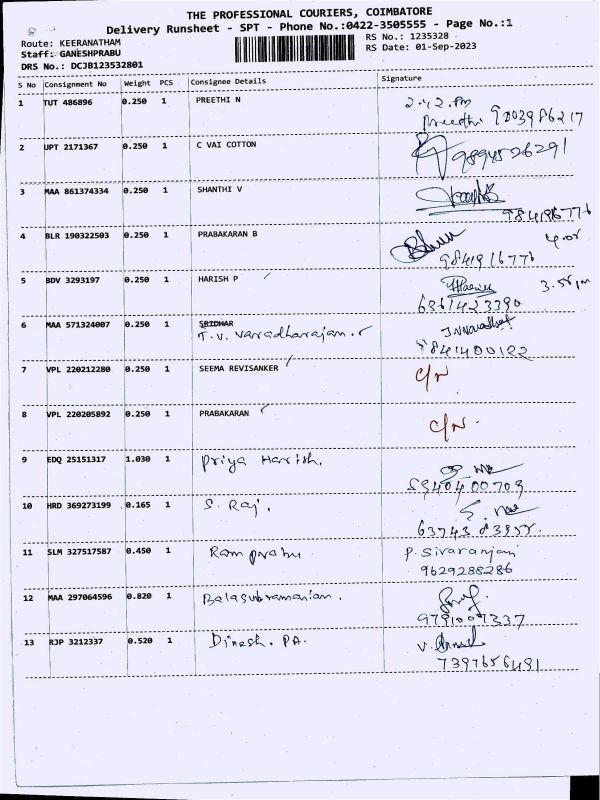 THE PROFESSIONAL COURIERS, COIMBATORE
Delivery Runsheet - SPT - Phone No.:0422-3505555 - Page No.:1
Route: KEERANATHAM
RS No.: 1235328
Staff: GANESHPRABU
RS Date: 01-Sep-2023
DRS No.: DCJB123532801
S No Consignment No Weight PCS Consignee Details Signature
1 TUT 486896 0.250 1 PREETHI N 2.42.pm
Preethi 9003986217
2 UPT 2171367 0.250 1 C VAI COTTON 9894526291
3 MAA 861374334 0.250 1 SHANTHI V
9841916776
4 BLR 190322503 0.250 1 PRABAKARAN B 4.05
9841916776
5 BDV 3293197 0.250 1 HARISH P 3.55 pm
6361423390
6 MAA 571324007 0.250 1 SRIDHAR
T.V. Varadharajan.r
9841400122
7 VPL 220212280 0.250 1 SEEMA REVISANKER C/N
8 VPL 220205892 0.250 1 PRABAKARAN C/N.
9 EDQ 25151317 1.030 1 Priya Harish.
10 HRD 369273199 0.165 1 S. Raj.
11 SLM 327517587 0.450 1 Ram prabu P. Sivaranjani
9629288286
12 MAA 297064596 0.820 1 Balasubramanian.
9791007337
13 RJP 3212337 0.520 1 Dinesh. PA.
7397656491